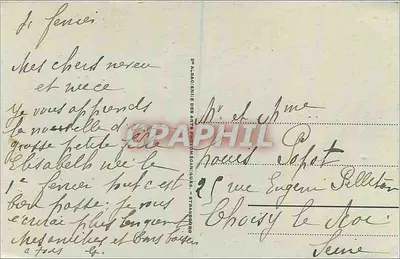 2 février
Mes chers neveu
et niece
Je vous apprends
la nouvelle d'
grosse petite fille
Elisabeth née le
1er février tout c'est
bien passé. je vous
écrirai plus longuement
Mes amitiés et bons baisers
a tous
Cie ALSACIENNE DES ARTS PHOTOMÉCANIQUES - STRASBOURG
CPAPHIL
Mr et Mme
Louis Popot
25 rue Eugene Pelletan
Choisy le Roi
Seine